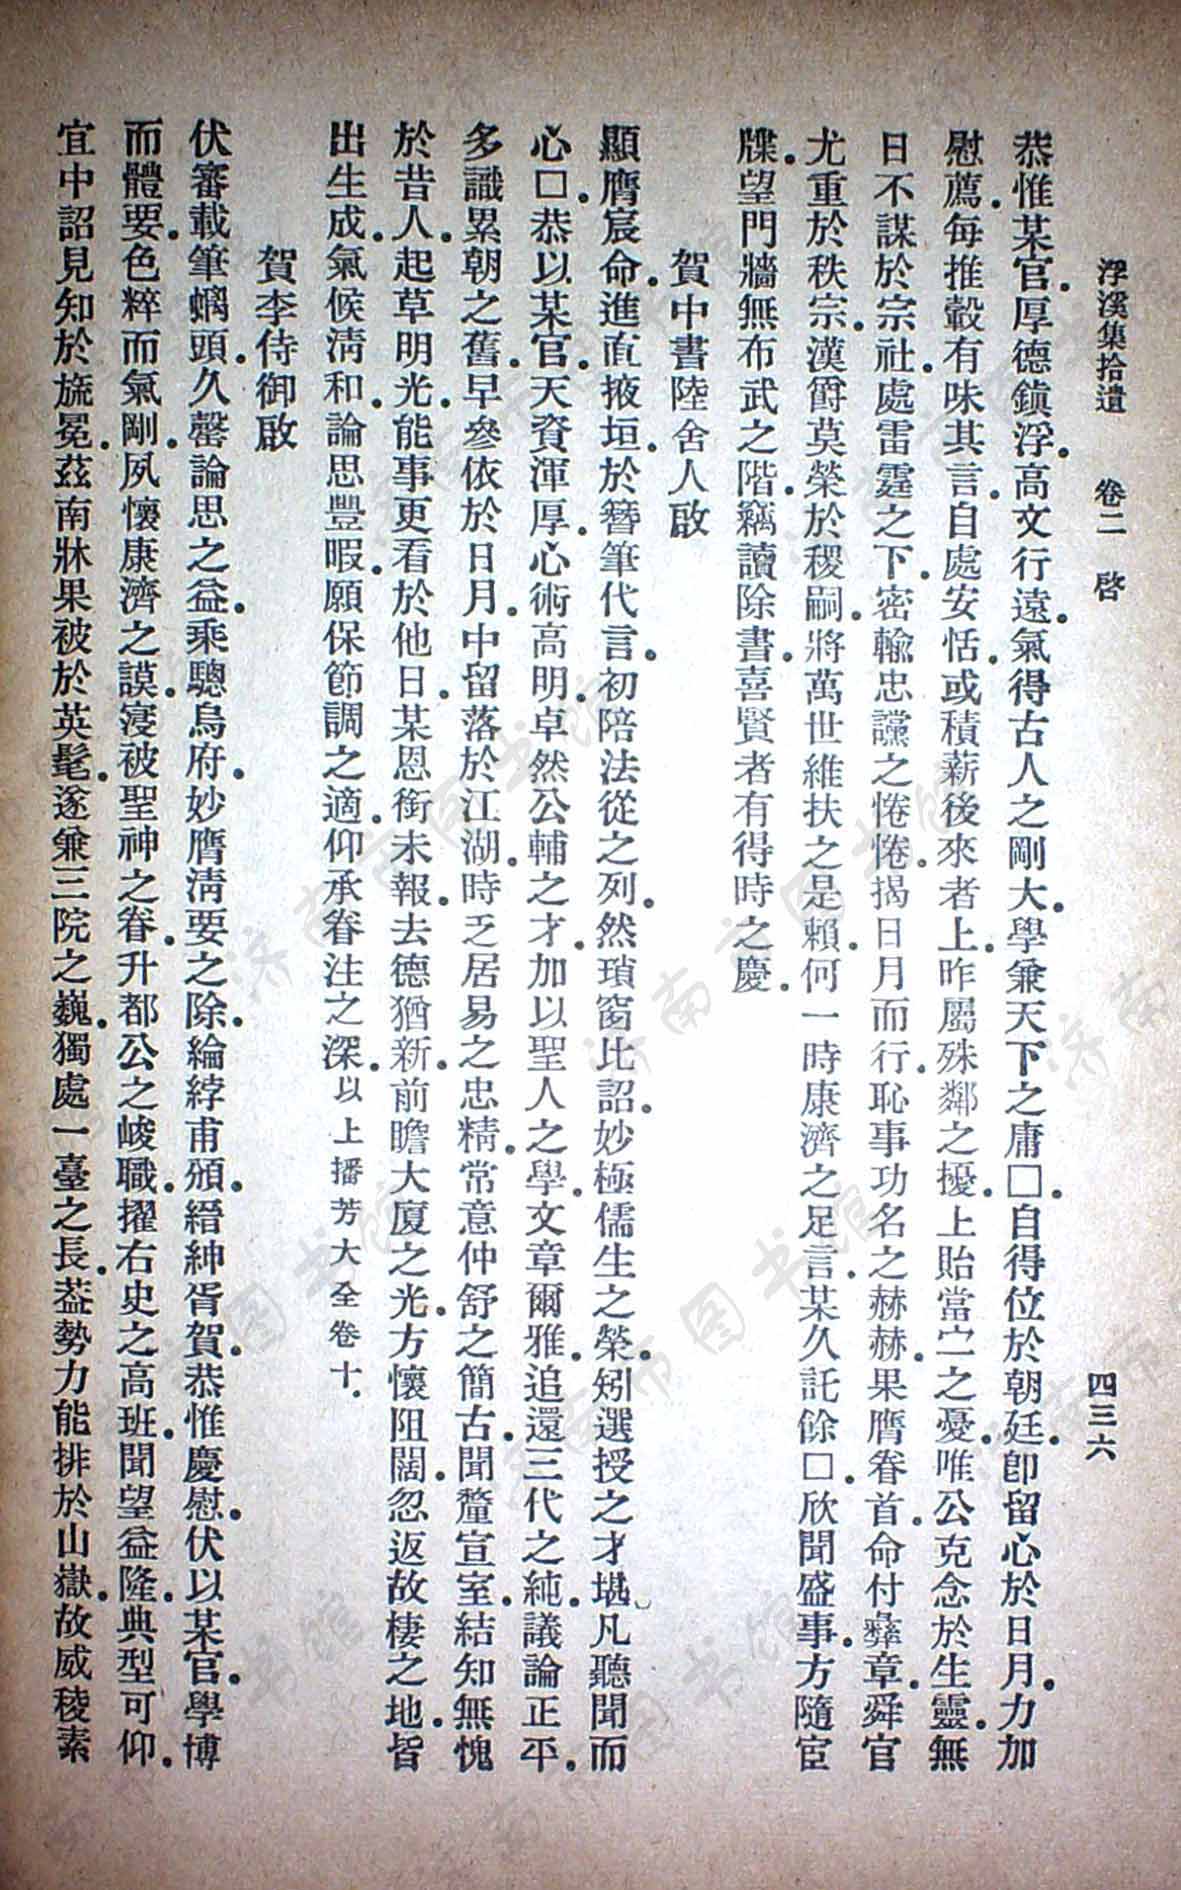 浮溪集拾遺　卷二　啓　四三六
恭惟某官。厚德鎮浮。高文行遠。氣得古人之剛大。學兼天下之庸□。自得位於朝廷。卽留心於日月。力加
慰薦。每推轂有味其言。自處安恬。或積薪後來者上。昨屬殊鄰之擾。上貽當宁之憂。唯公克念於生靈。無
日不謀於宗社。處雷霆之下。密輸忠讜之惓惓。揭日月而行。恥事功名之赫赫。果膺眷首。命付彝章。舜官
尤重於秩宗。漢爵莫榮於稷嗣。將萬世維扶之是賴。何一時康濟之足言。某久託餘□。欣聞盛事。方隨宦
牒。望門牆無布武之階。竊讀除書。喜賢者有得時之慶。
賀中書陸舍人啟
顯膺宸命。進直掖垣。於簪筆代言。初陪法從之列。然瑣窗比詔。妙極儒生之榮。矧選授之才堪。凡聽聞而
心□。恭以某官。天資渾厚。心術高明。卓然公輔之才。加以聖人之學。文章爾雅。追還三代之純。議論正平。
多識累朝之舊。早參依於日月。中留落於江湖。時乏居易之忠精。常意仲舒之簡古。聞釐宣室。結知無愧
於昔人。起草明光。能事更看於他日。某恩銜未報。去德猶新。前瞻大廈之光。方懷阻闊。忽返故棲之地。皆
出生成。氣候淸和。論思豐暇。願保節調之適。仰承眷注之深。以上播芳大全卷十。
賀李侍御啟
伏審載筆螭頭。久罄論思之益。乘驄烏府。妙膺淸要之除。綸綍甫頒。縉紳胥賀。恭惟慶慰。伏以某官。學博
而體要。色粹而氣剛。夙懷康濟之謨。寖被聖神之眷。升都公之峻職。擢右史之高班。聞望益隆。典型可仰。
宜中詔見知於旒冕。茲南牀果被於英髦。遂兼三院之巍。獨處一臺之長。葢勢力能排於山嶽。故威稜素